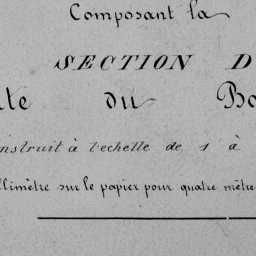 Composant la
SECTION D
te du Bo
onstruit à l'echelle de 1 à
llimètre sur le papier pour quatre mètre